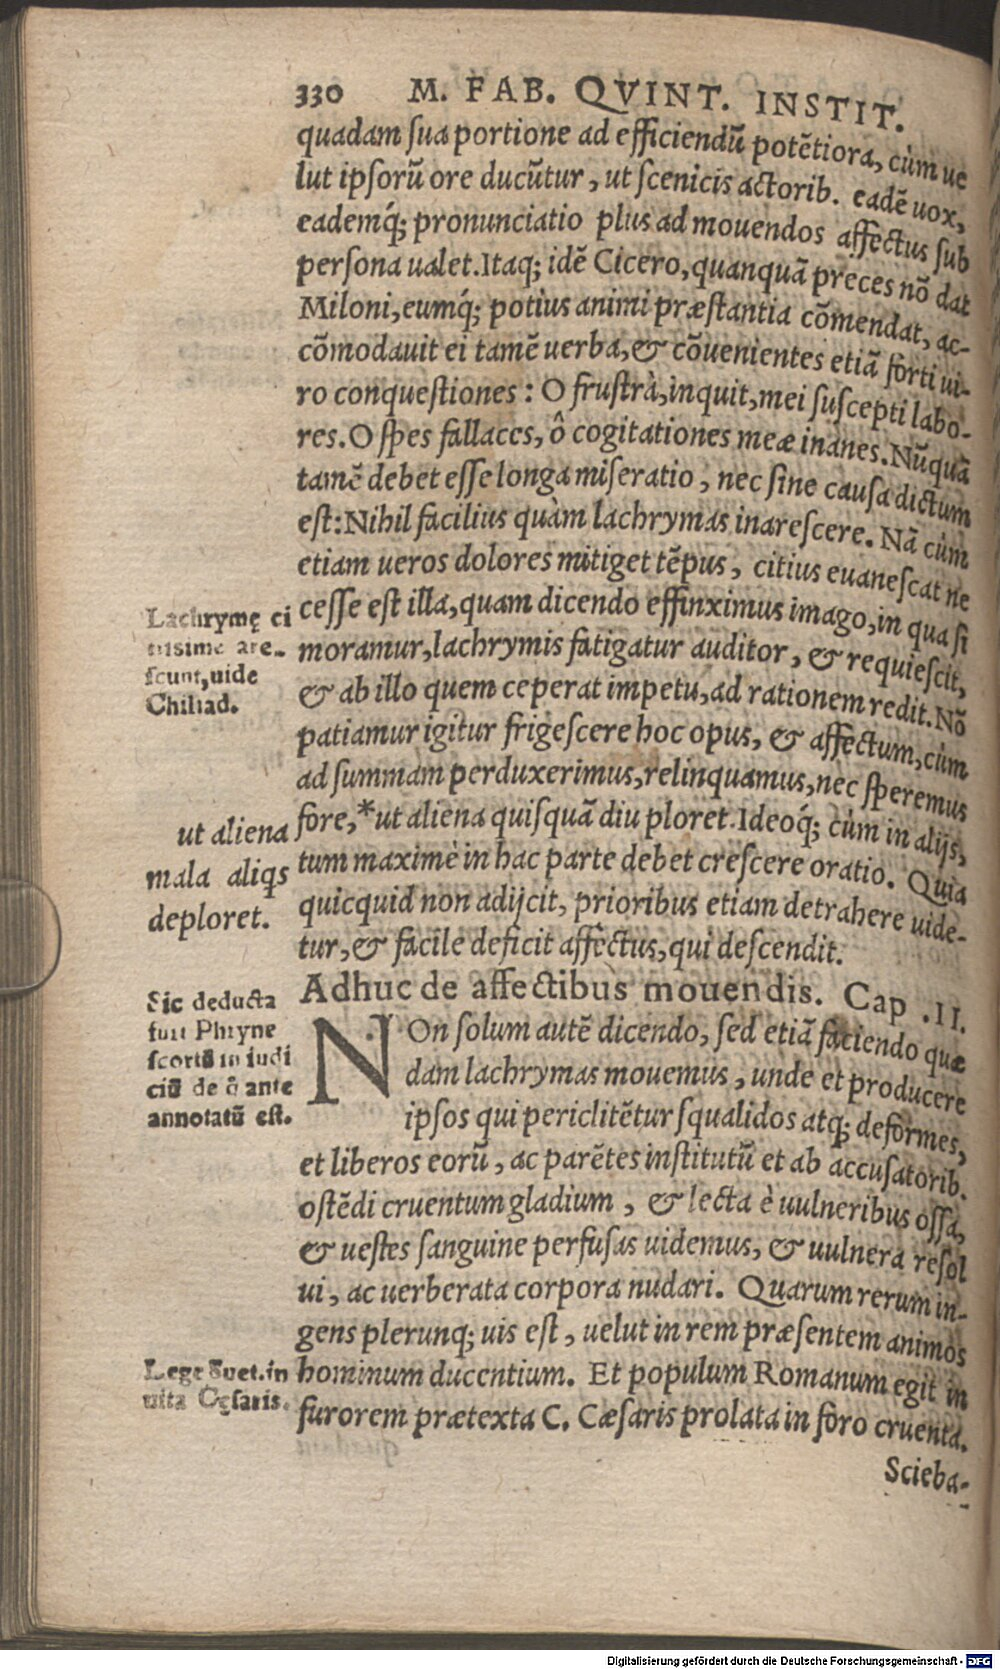 330 M. FAB. QVINT. INSTIT.
quadam sua portione ad efficiendū potētiora, cùm ue
lut ipsorū ore ducūtur, ut scenicis actorib. eadē uox,
eademq́; pronunciatio plus ad mouendos affectus sub
persona ualet. Itaq; idē Cicero, quanquā preces nō dat
Miloni, eumq́; potius animi præstantia cōmendat, ac-
cōmodauit ei tamē uerba, & cōuenientes etiā forti ui-
ro conquestiones: O frustrà, inquit, mei suscepti labo-
res. O spes fallaces, ô cogitationes meæ inanes. Nūquā
tamē debet esse longa miseratio, nec sine causa dictum
est: Nihil facilius quàm lachrymas inarescere. Nā cùm
etiam ueros dolores mitiget tēpus, citius euanescat ne
cesse est illa, quam dicendo effinximus imago, in qua si
moramur, lachrymis fatigatur auditor, & requiescit,
& ab illo quem ceperat impetu, ad rationem redit. Nō
patiamur igitur frigescere hoc opus, & affectum, cùm
ad summam perduxerimus, relinquamus, nec speremus
fore, *ut aliena quisquā diu ploret. Ideoq́; cùm in alijs,
tum maximè in hac parte debet crescere oratio. Quia
quicquid non adijcit, prioribus etiam detrahere uide-
tur, & facile deficit affectus, qui descendit.
Lachrymę ci
tissime are-
scunt, uide
Chiliad.
ut aliena
mala aliq̃s
deploret.
Adhuc de affectibus mouendis. Cap .II.
NOn solum autē dicendo, sed etiā faciendo quæ
dam lachrymas mouemus, unde et producere
ipsos qui periclitētur squalidos atq; deformes,
et liberos eorū, ac parētes institutū et ab accusatorib.
ostēdi cruentum gladium, & lecta è uulneribus ossa,
& uestes sanguine perfusas uidemus, & uulnera resol
ui, ac uerberata corpora nudari. Quarum rerum in-
gens plerunq; uis est, uelut in rem præsentem animos
hominum ducentium. Et populum Romanum egit in
furorem prætexta C. Cæsaris prolata in foro cruenta.
Sic deducta
fuit Phryne
scortū in iudi
ciū de q̄ ante
annotatū est.
Lege Suet. in
uita Cęsaris.
Scieba-
Digitalisierung gefördert durch die Deutsche Forschungsgemeinschaft - DFG